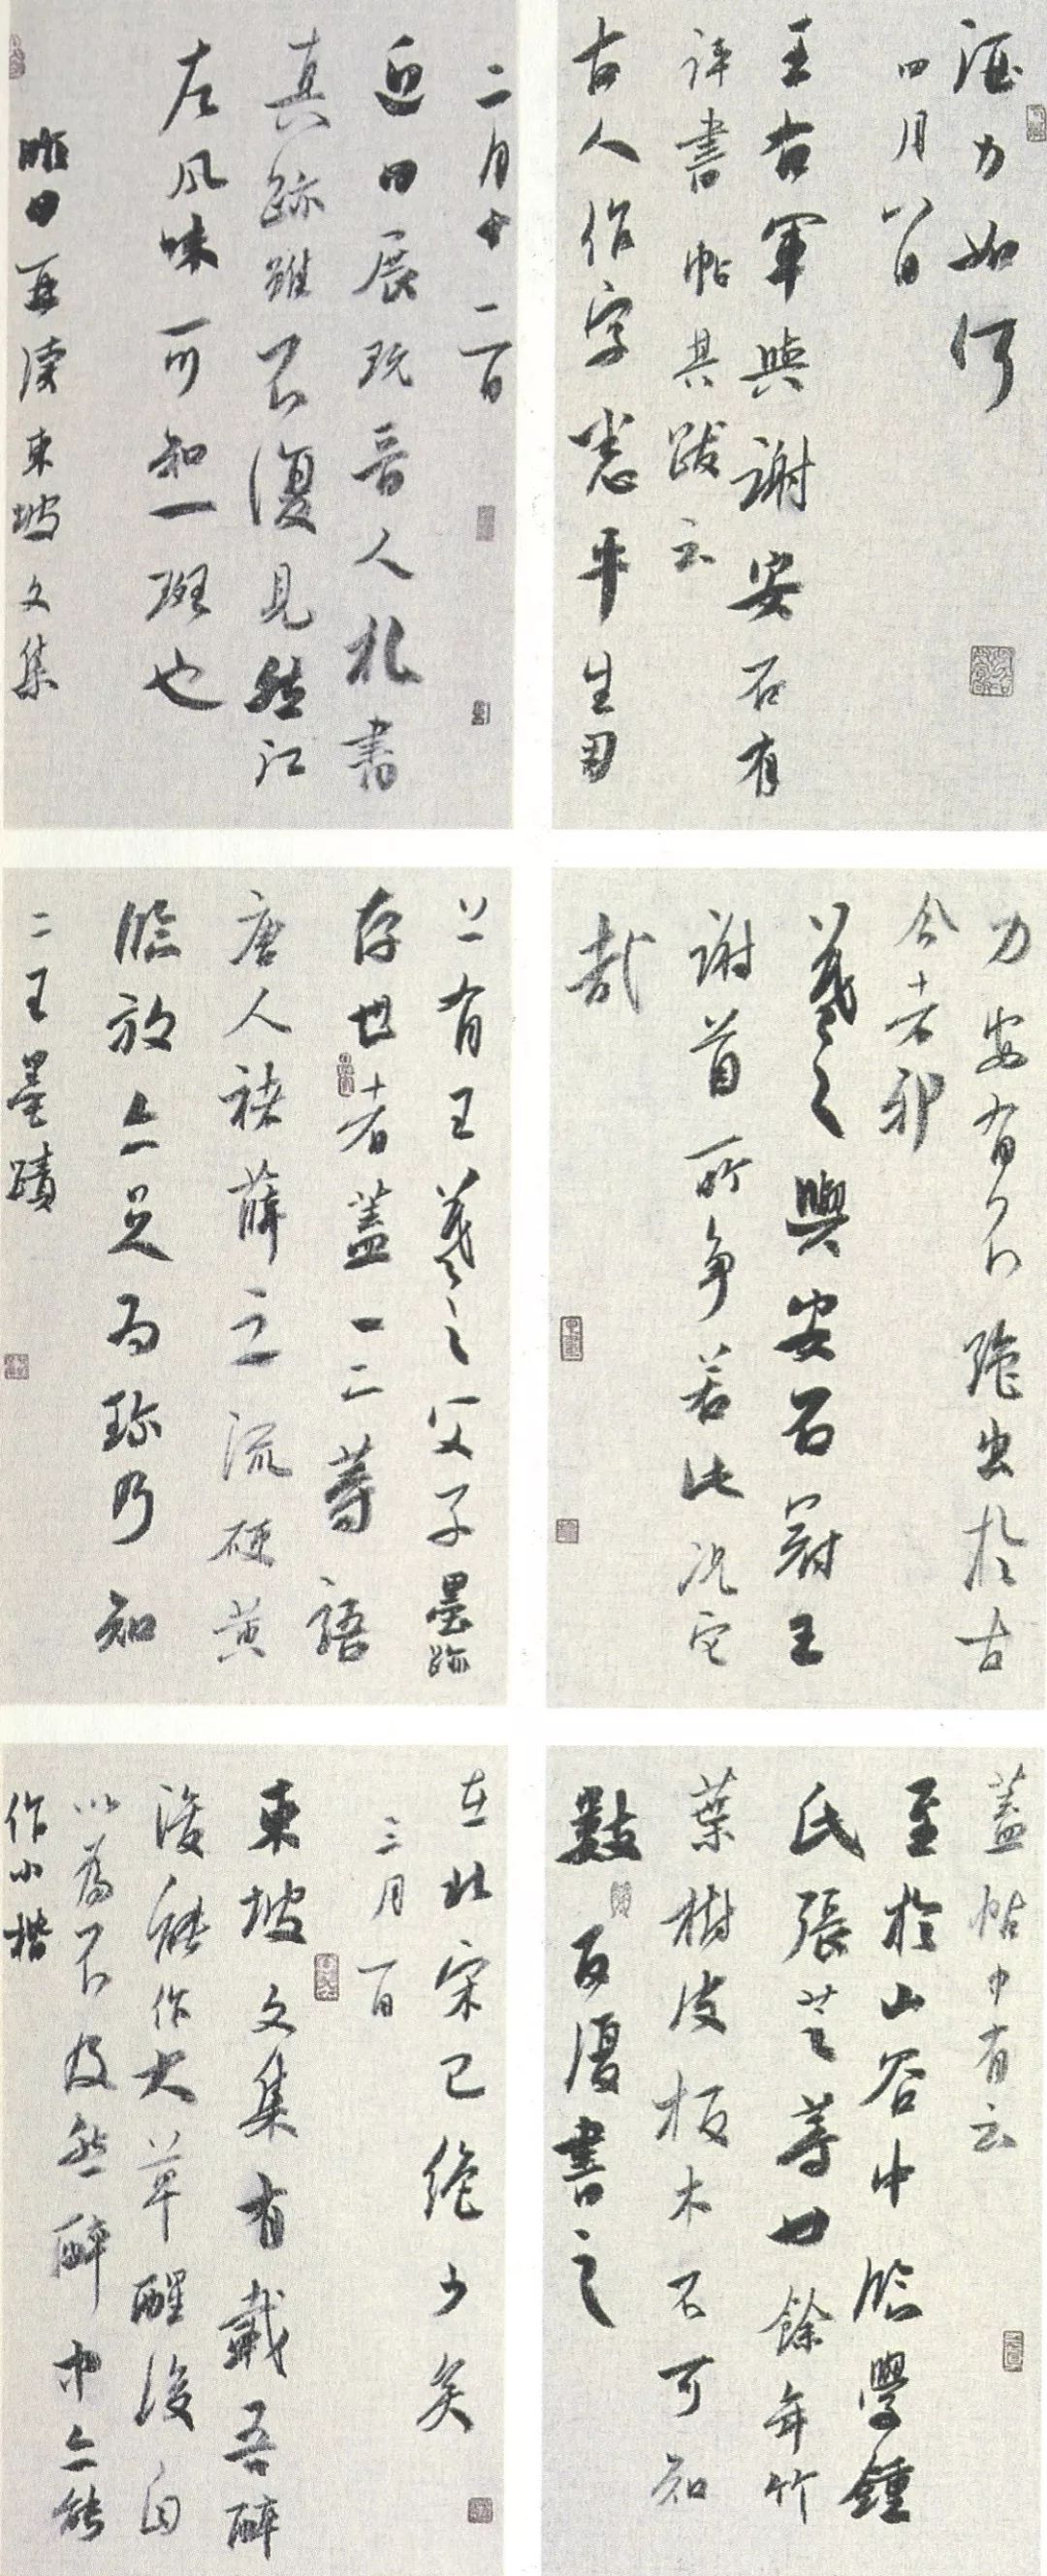 二月十二日
近日展玩晉人札書
真跡雖不復見然江
左風味可知一斑也
昨日再讀東坡文集
上有王羲之父子墨跡
存世者蓋一二等語
唐人褚薛之流硬黃
臨放亦足為珍乃知
二王墨蹟
在北宋已絕少矣
三月一日
東坡文集有載吾醉
後能作大草醒後自
以為不及然醉中亦能
作小楷
酒力如何
四月八日
王右軍與謝安石有
評書帖其跋云
古人作字悉平生用
力安有不出於古
今者耶
羲之與安石冠王
謝首所爭若此況它
哉
蓋帖中有云
至於山谷中臨學鍾
氏張芝等廿餘年竹
葉樹皮板木不可知
數反復書之